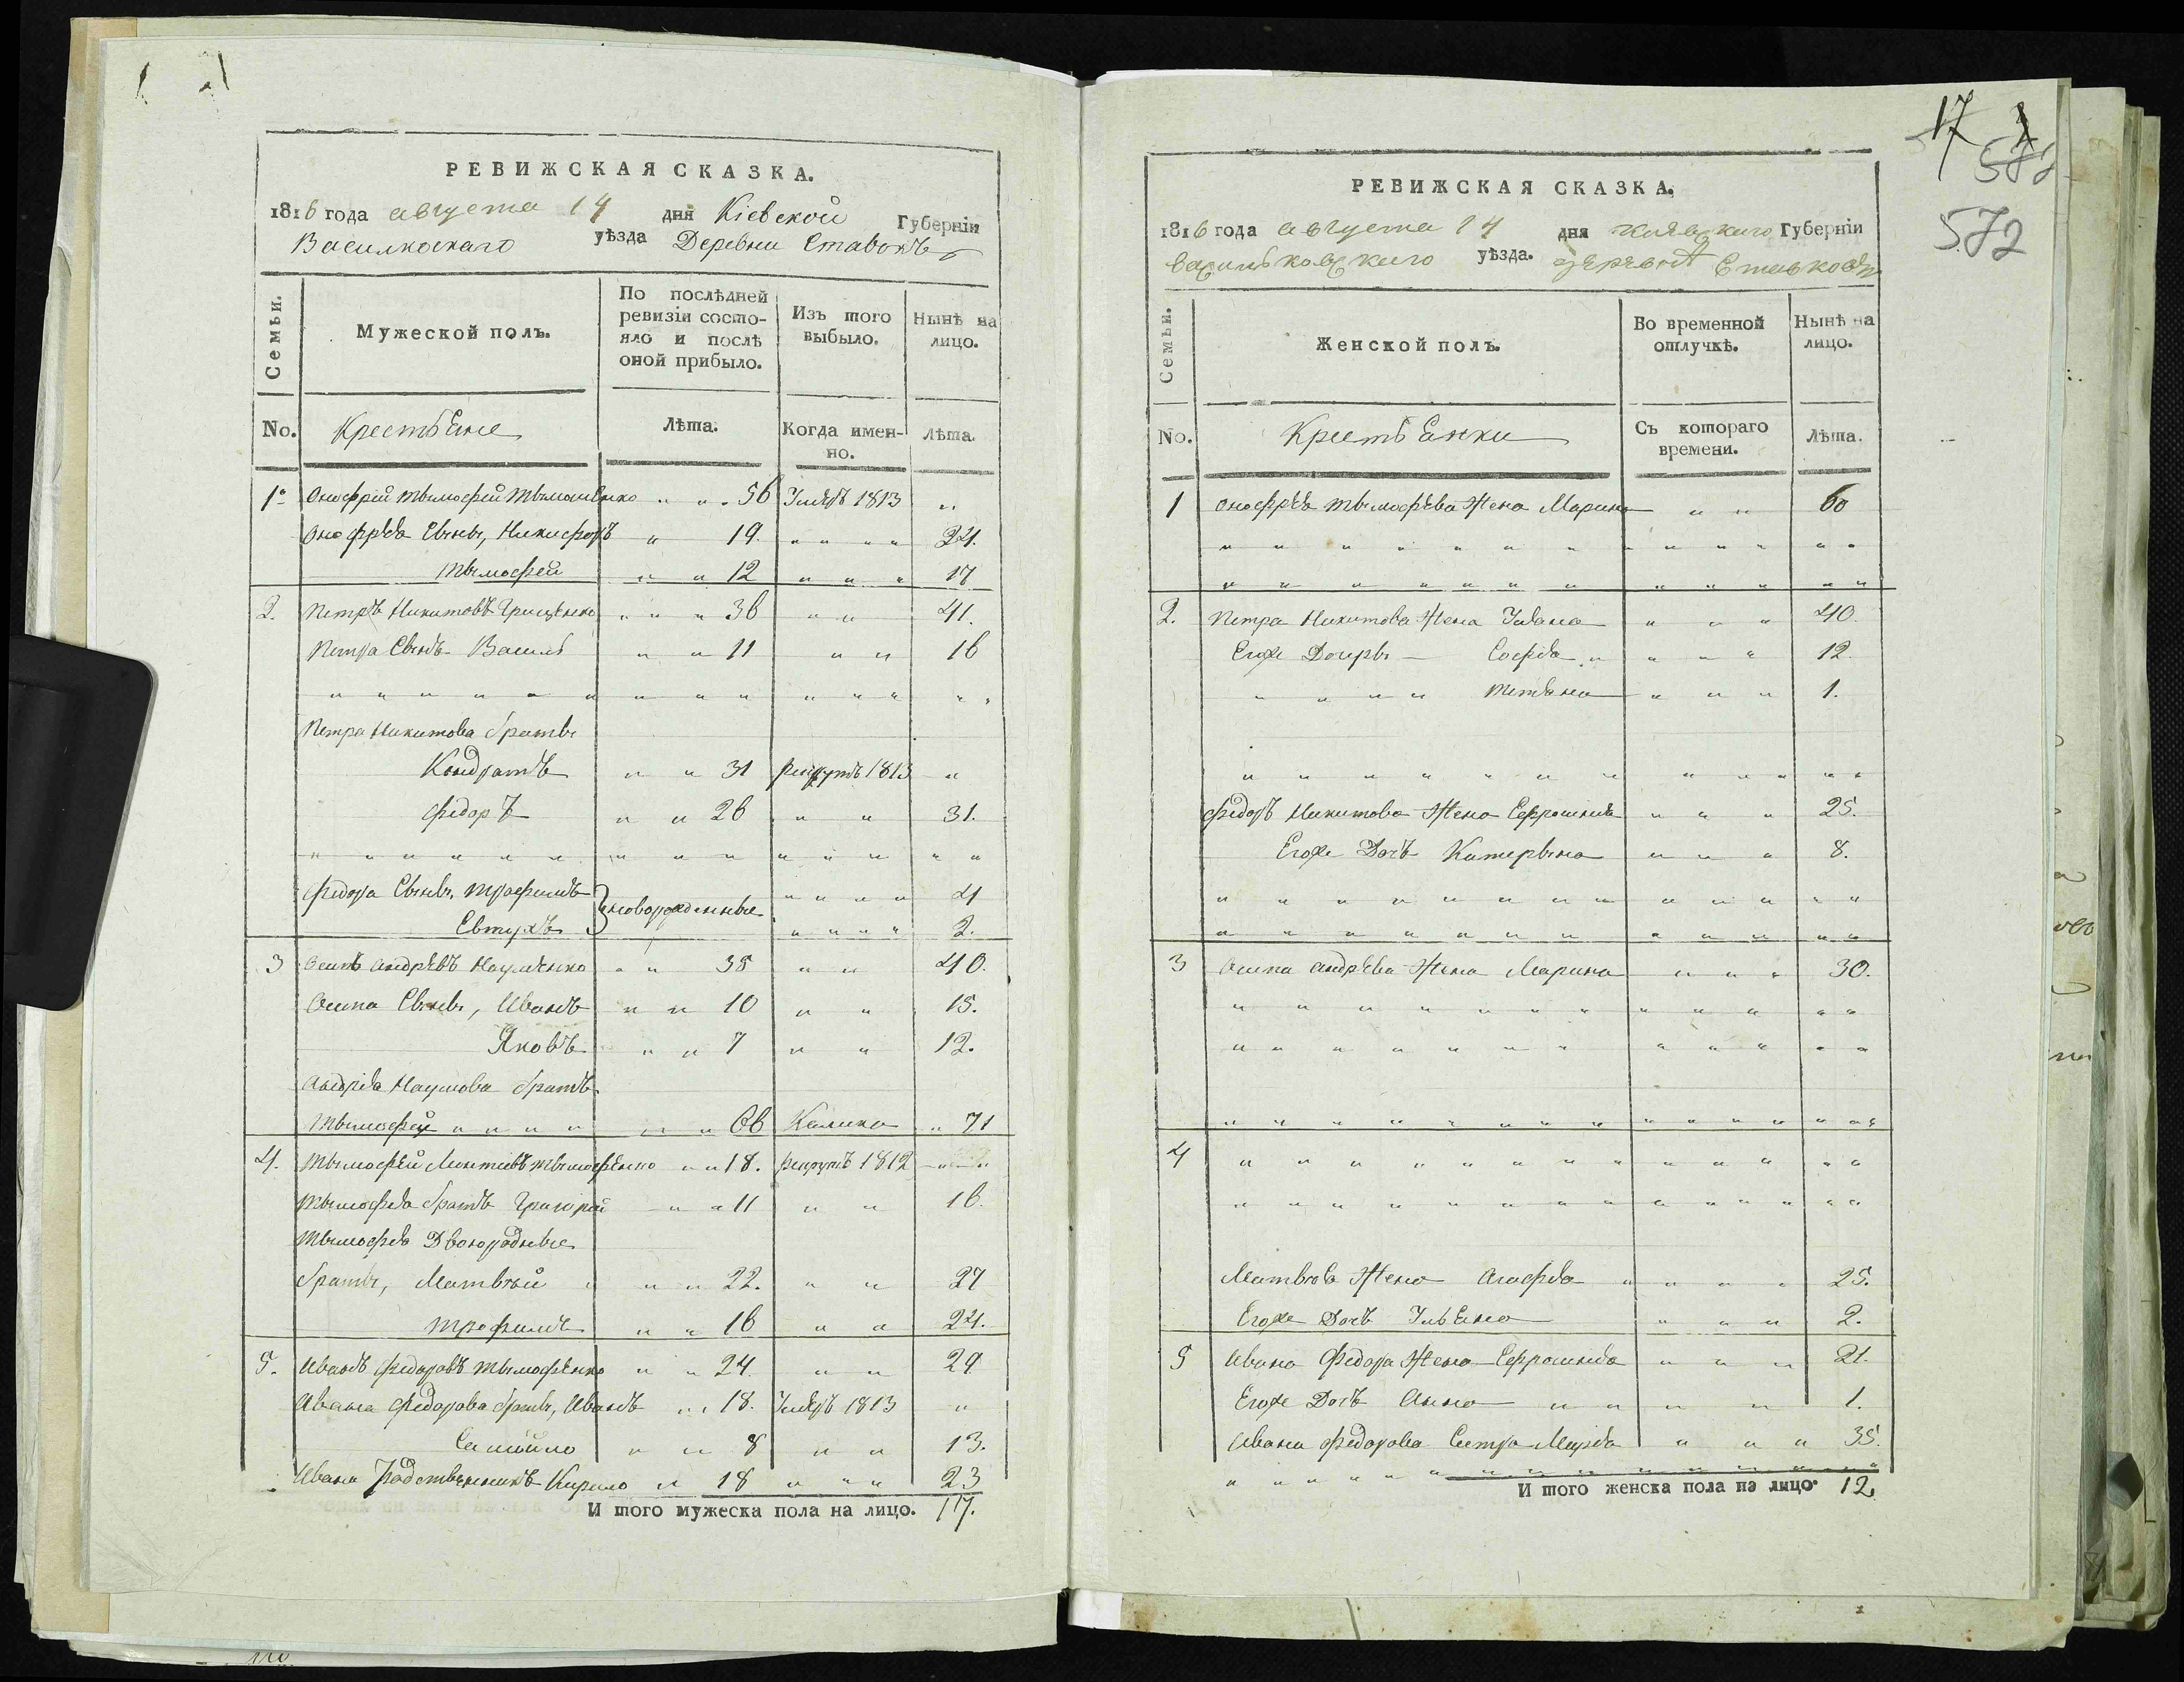 РЕВИЖСКАЯ СКАЗКА.
1816 года августа 14 дня Кіевской Губерніи
Василкоскаго уѣзда Деревни Ставокъ
Семьи.
Мужеской полъ.
По послѣдней ревизіи состояло и послѣ оной прибыло.
Изъ того выбыло.
Нынѣ на лицо.
No. Крестьѣне Лѣта. Когда именно. Лѣта.
1. Онофрей Тымофей Тымошѣнко " " 56 Умеръ 1813 "
Онофрѣя Сыны, Никифоръ " 19. " " " " 24.
Тымофей " " 12 " " " 17
2. Петръ Никитовъ Грицѣнко " " " 36 " " 41.
Петра Сынъ Василь " " 11 " " 16
" " " " " " " " " " " " " "
Петра Никитова братьи
Кондратъ " " 31 рекрутъ 1813 "
Федоръ " " 26 " " 31.
" " " " " " " " " " " " " "
Федора Сыны, Трофимъ новорожденные " " " " 4
Евтухъ " " " " 2.
3 Осипъ Андрѣевъ Наумѣнко " " 35 " " 40.
Осипа Сыны, Иванъ " " 10 " " 15.
Яковъ " " 7 " " 12.
Андрѣя Наумова братъ
Тымофей " " " " " " 66 Калика " 71
4. Тымофей Леонтіевъ Тымофѣнко " " 18. рекрутъ 1812 " "
Тымофея братъ Григорей " " 11 " " 16.
Тымофея Двоюродные
братьи, Матвѣй " " " 22. " " 27
Трофимъ " " 16 " " 21.
5. Иванъ Федоровъ Тымофѣнко " " 24. " " 29
Ивана Федорова братьи, Иванъ " " 18. Умеръ 1813 "
Самойло " " 8 " " 13.
Ивана Родственникъ Кирило " 18 " " " 23
И того мужеска пола на лицо. 17.
17
572
572
РЕВИЖСКАЯ СКАЗКА.
1816 года августа 14 дня киевского Губерніи
васильковского уѣзда. деревнѣ Ставковъ
Семьи.
Женской полъ.
Во временной отлучкѣ.
Нынѣ на лицо.
No. Крестьѣнки Съ котораго времени. Лѣта.
1 Онофрѣя Тымофѣева Жена Марина " " 60
" " " " " " " " " " " " "
" " " " " " " " " " " " "
2. Петра Никитова Жена Уляна " " " 40.
Егоже Дочеры Софія " " " " 12.
" " " " Тетяна " " " 1.
" " " " " " " " " " " " "
Федоръ Никитова Жена Ефросинія " " " 25.
Егоже Дочъ Катерына " " " 8.
" " " " " " " " " " " " "
" " " " " " " " " " " " "
3 Осипа Андрѣева Жена Марина " " " 30.
" " " " " " " " " " " " "
" " " " " " " " " " " " "
" " " " " " " " " " " " "
4 " " " " " " " " " " " " "
" " " " " " " " " " " " "
Матвѣя Жена Агафія " " " " 25.
Егоже Дочъ Улѣяна " " " 2.
5 Ивана Федора Жена Ефросинія " " " 21.
Егоже Дочъ Анна " " " " 1.
Ивана Федорова Сестра Марія " " " 35.
" " " " " " " " " " " " "
И того женска пола на лицо. 12.